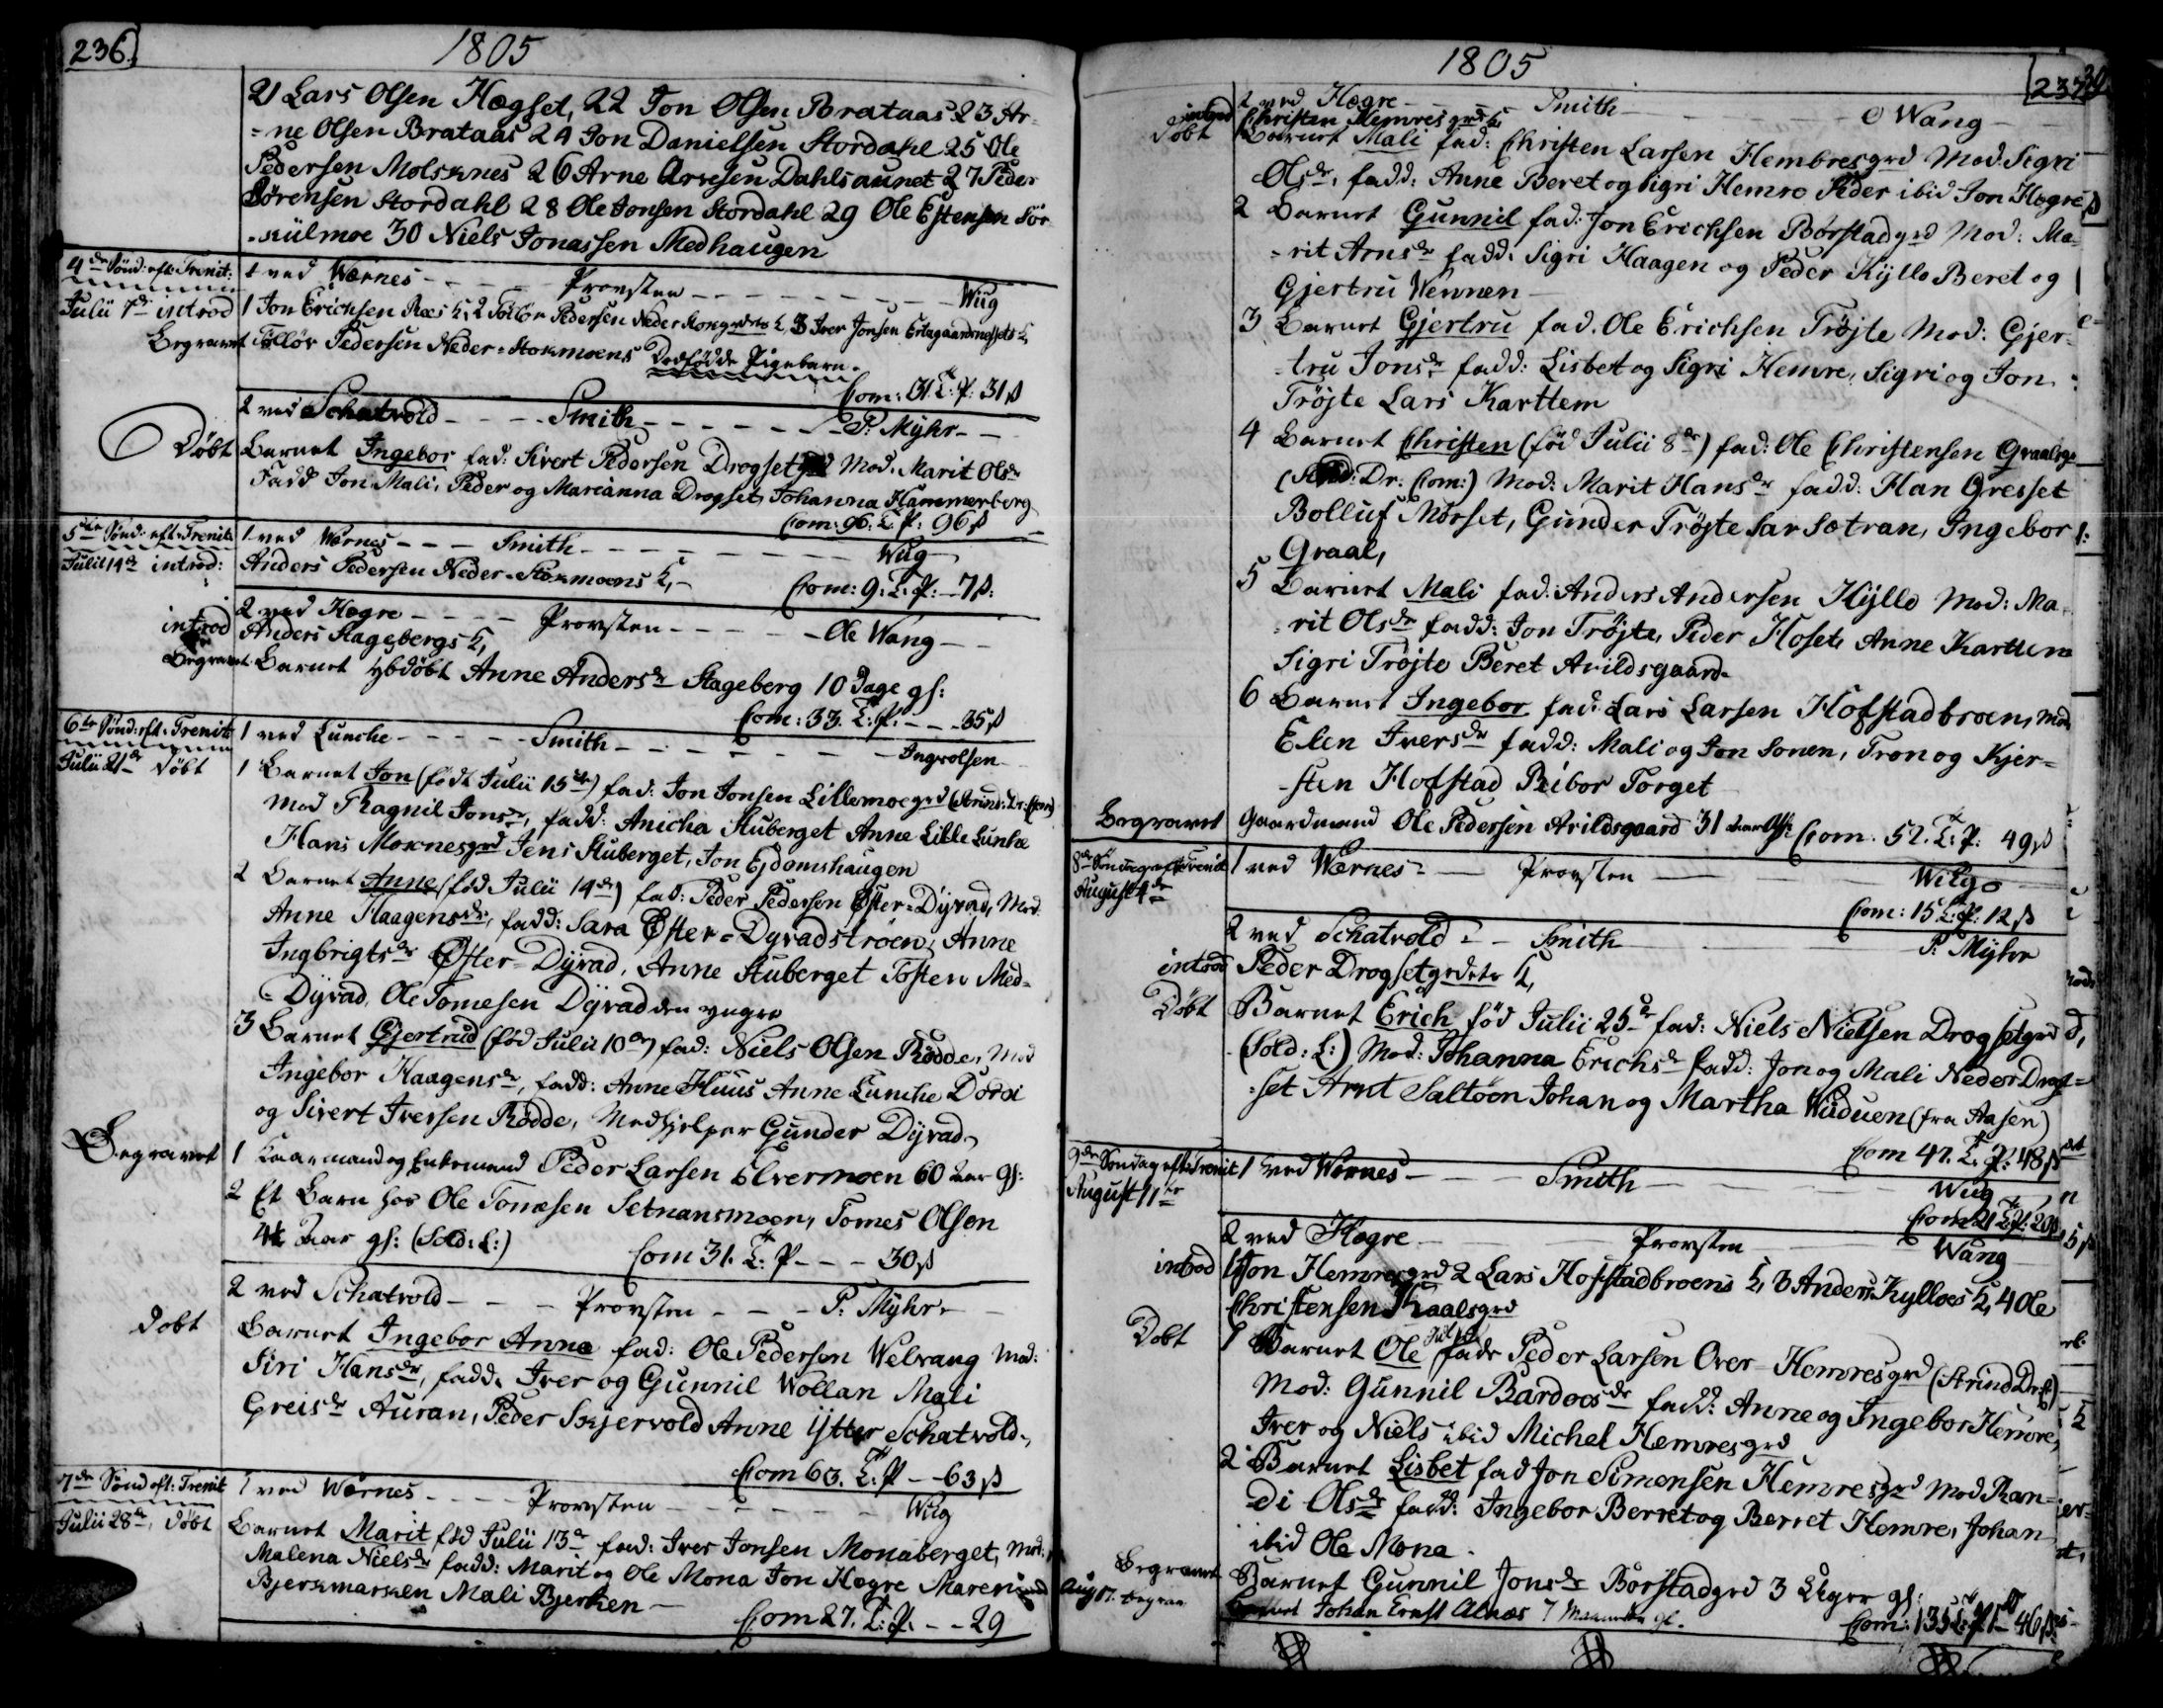 236
1805
21 Lars Olsen Hægset, 22 Jon Olsen Brataas 23 Ar-
=ne Olsen Brataas 24 Jon Danielsen Stordahl 25 Ole
Pedersen Molsknes 26 Arne Arnesen Dahlsaunet 27 Peder
Sörensen Stordahl 28 Ole Jonsen Stordahl 29 Ole Estensen Sör-
kulmoe 30 Niels Jonassen Medhaugen
4de Sönd: eft: Trenit: 1 ved Wærnes - - - Provsten - - - Wiig
Julii 7de introd 1 Jon Erichsen Ræs K, 2 Pedersen Neder 3 Iver Jonsen
Begravet Tollöv Pedersen Neder-Stokmoens Dødfödde Pigebarn.
Com: 31. T: P: 31 ß
2 ved Schatvold - - - Smith - - - P: Myhr - -
Döbt Barnet Ingebor fad: Sivert Pedersen Drogset Mod: Marit Olsdr
Fadd Jon Mali, Peder og Marianna Drogset, Johanna Hammerberg
Com: 96. T: P: 96 ß
5te Sönd: eft: Trenit: 1 ved Wærnes - - - Smith - - - Wiig
Julii 14de introd: Anders Pedersen Neder-Stokmoens K, -
Com: 9. T: P: - 7 ß:
2 ved Hegre - - - Provsten - - - Ole Wang - -
introd Anders Stagebergs K,
Begravet Barnet Anne Andersdr Stageberg 10 Dage gl:
Com: 33. T: P: - - 35 ß
6te Sönd: eft: Trenit: 1 ved Lunche - - - Smith - - - Ingvolsen
Julii 21de Döbt 1 Barnet Jon (födt Julii 15de) fad: Jon Jonsen Lillemoegrd (Strind: Dr: Com)
Mod Ragnil Jonsdr, fadd: Anicha Stuberget Anne Lille Lunke
Hans Moknesgrd Jens Stuberget, Jon Ejdomshaugen
2 Barnet Anne (föd Julii 14de) fad: Peder Pedersen Öster=Dyvad, Mod
Anne Haagensdr, fadd: Sara Öster=Dyvadströen, Anne
Ingbrigtsdr Öster=Dyvad, Anne Stuberget Tosten Med=
=Dyvad, Ole Tomesen Dyvad den yngre
3 Barnet Gjertrud (föd Julii 10de) fad: Niels Olsen Rödde, Mod
Ingebor Haagensdr, fadd: Anne Huus Anne Lunche Dordi
og Sivert Iversen Rödde, Medhjelper Gunder Dyvad,
Begravet 1 Kaarmand og Enkemand Peder Larsen Elvermoen 60 Aar gl:
2 Et Barn hos Ole Tomesen Setnansmoen, Tomes Olsen
4 Aar gl: (Sold: L:)
Com 31. T: P - - - 30 ß
2 ved Schatvold - - - Provsten - - - P: Myhr - -
Döbt Barnet Ingebor Anna fad: Ole Pedersen Welvang Mod:
Siri Hansdr, fadd: Iver og Gunnil Wollan Mali
Greisdr Auran, Peder Skjervold Anne Ytter Schatvold,
Com 63. T: P - - 63 ß
7de Sönd eft: Trenit 1 ved Wærnes - - - Provsten - - - Wiig
Julii 28de, Döbt Barnet Marit föd Julii 13de fad: Iver Jonsen Monaberget, Mod:
Malena Nielsdr fadd: Marit og Ole Mona Jon Hegre Maren
Bjerkmarken Mali Bjerken -
Com 27. T: P: - - 29
1805
237
2 ved Hegre - Smith - - - O Wang
introd Christen Hemresgrds K
Döbt Barnet Mali fad: Christen Larsen Hembresgrd Mod: Sigri
Olsdr, fadd: Anne Beret og Sigri Hemre Peder ibid Jon Hegre
2 Barnet Gunnil fad: Jon Erichsen Börstadgrd Mod: Ma=
=rit Arnsdr fadd: Sigri Haagen og Peder Kyllo Beret og
Gjertru Wennen
3 Barnet Gjertru fad. Ole Erichsen Tröjte Mod: Gjer=
=tru Jonsdr fadd: Lisbet og Sigri Hemre, Sigri og Jon
Tröjte Lars Karttem
4 Barnet Christen (föd Julii 8de) fad: Ole Christensen Graals
(Dr: Com:) Mod: Marit Hansdr fadd: Han Gresset
Bolluf Mørset, Gunder Tröjte Sætran, Ingebor
Graal,
5 Barnet Mali fad: Anders Andersen Kyllo Mod: Ma=
=rit Olsdr fadd: Jon Tröjte, Peder Hoset, Anne Karttem
Sigri Tröjte Beret Arildsgaard
6 Barnet Ingebor fad: Lars Larsen Hofstadbroen, Mod
Elen Iversdr fadd: Mali og Jon Sonen, Tron og Kjer=
=sten Hofstad Torget
Begravet Gaardmand Ole Pedersen Arildsgaard 31 Aar gl: Com. 52. T: P: 49 ß
8de Söndag eft: Trenit: 1 ved Wærnes - - Provsten - - Wiig
August 4de
Com: 15 T: P: 12 ß
2 ved Schatvold - - Smith P: Myhr
introd Peder Drogsetgrdets K,
Döbt Barnet Erich föd Julii 25de fad: Niels Nielsen Drogsetgrd
(Sold: L:) Mod: Johanna Erichsdr fadd: Jon og Mali Neder Drog=
=set Arnt Saltöen Johan og Martha Wuduen (fra Aasen)
Com 47. T: P: 48 ß
9de Söndag eft: Trenit 1 ved Wærnes - - Smith - - Wiig
August 11te
Com 21 T: P: 20 ß
2 ved Hegre - Provsten - Wang
introd 1 Jon Hemresgrd 2 Lars Hofstadbroens K, 3 Anders Kylloes K, 4 Ole
Christensen Graalsgrd
Döbt 1 Barnet Ole fadr Peder Larsen Over-Hemresgrd (Strind Dr:)
Mod: Gunnil Bardoesdr fadd: Anne og Ingebor Hemre,
Iver og Niels ibid Michel Hemresgrd
2 Barnet Lisbet fad Jon Simonsen Hemresgrd Mod Ran=
di Olsdr fadd: Ingebor Berret og Berret Hemre, Johan
ibid Ole Mona.
Begravet Barnet Gunnil Jonsdr Börstadgrd 3 Uger gl:
Aug 17. begrav Johan Ernst Alnæs 7 Maaneder gl.
Com: 135 T: P 46 ß